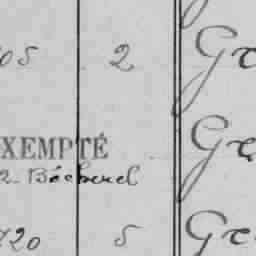 05 2 Gr
XEMPTÉ Gr
2. Bécherel
720 5 Gr